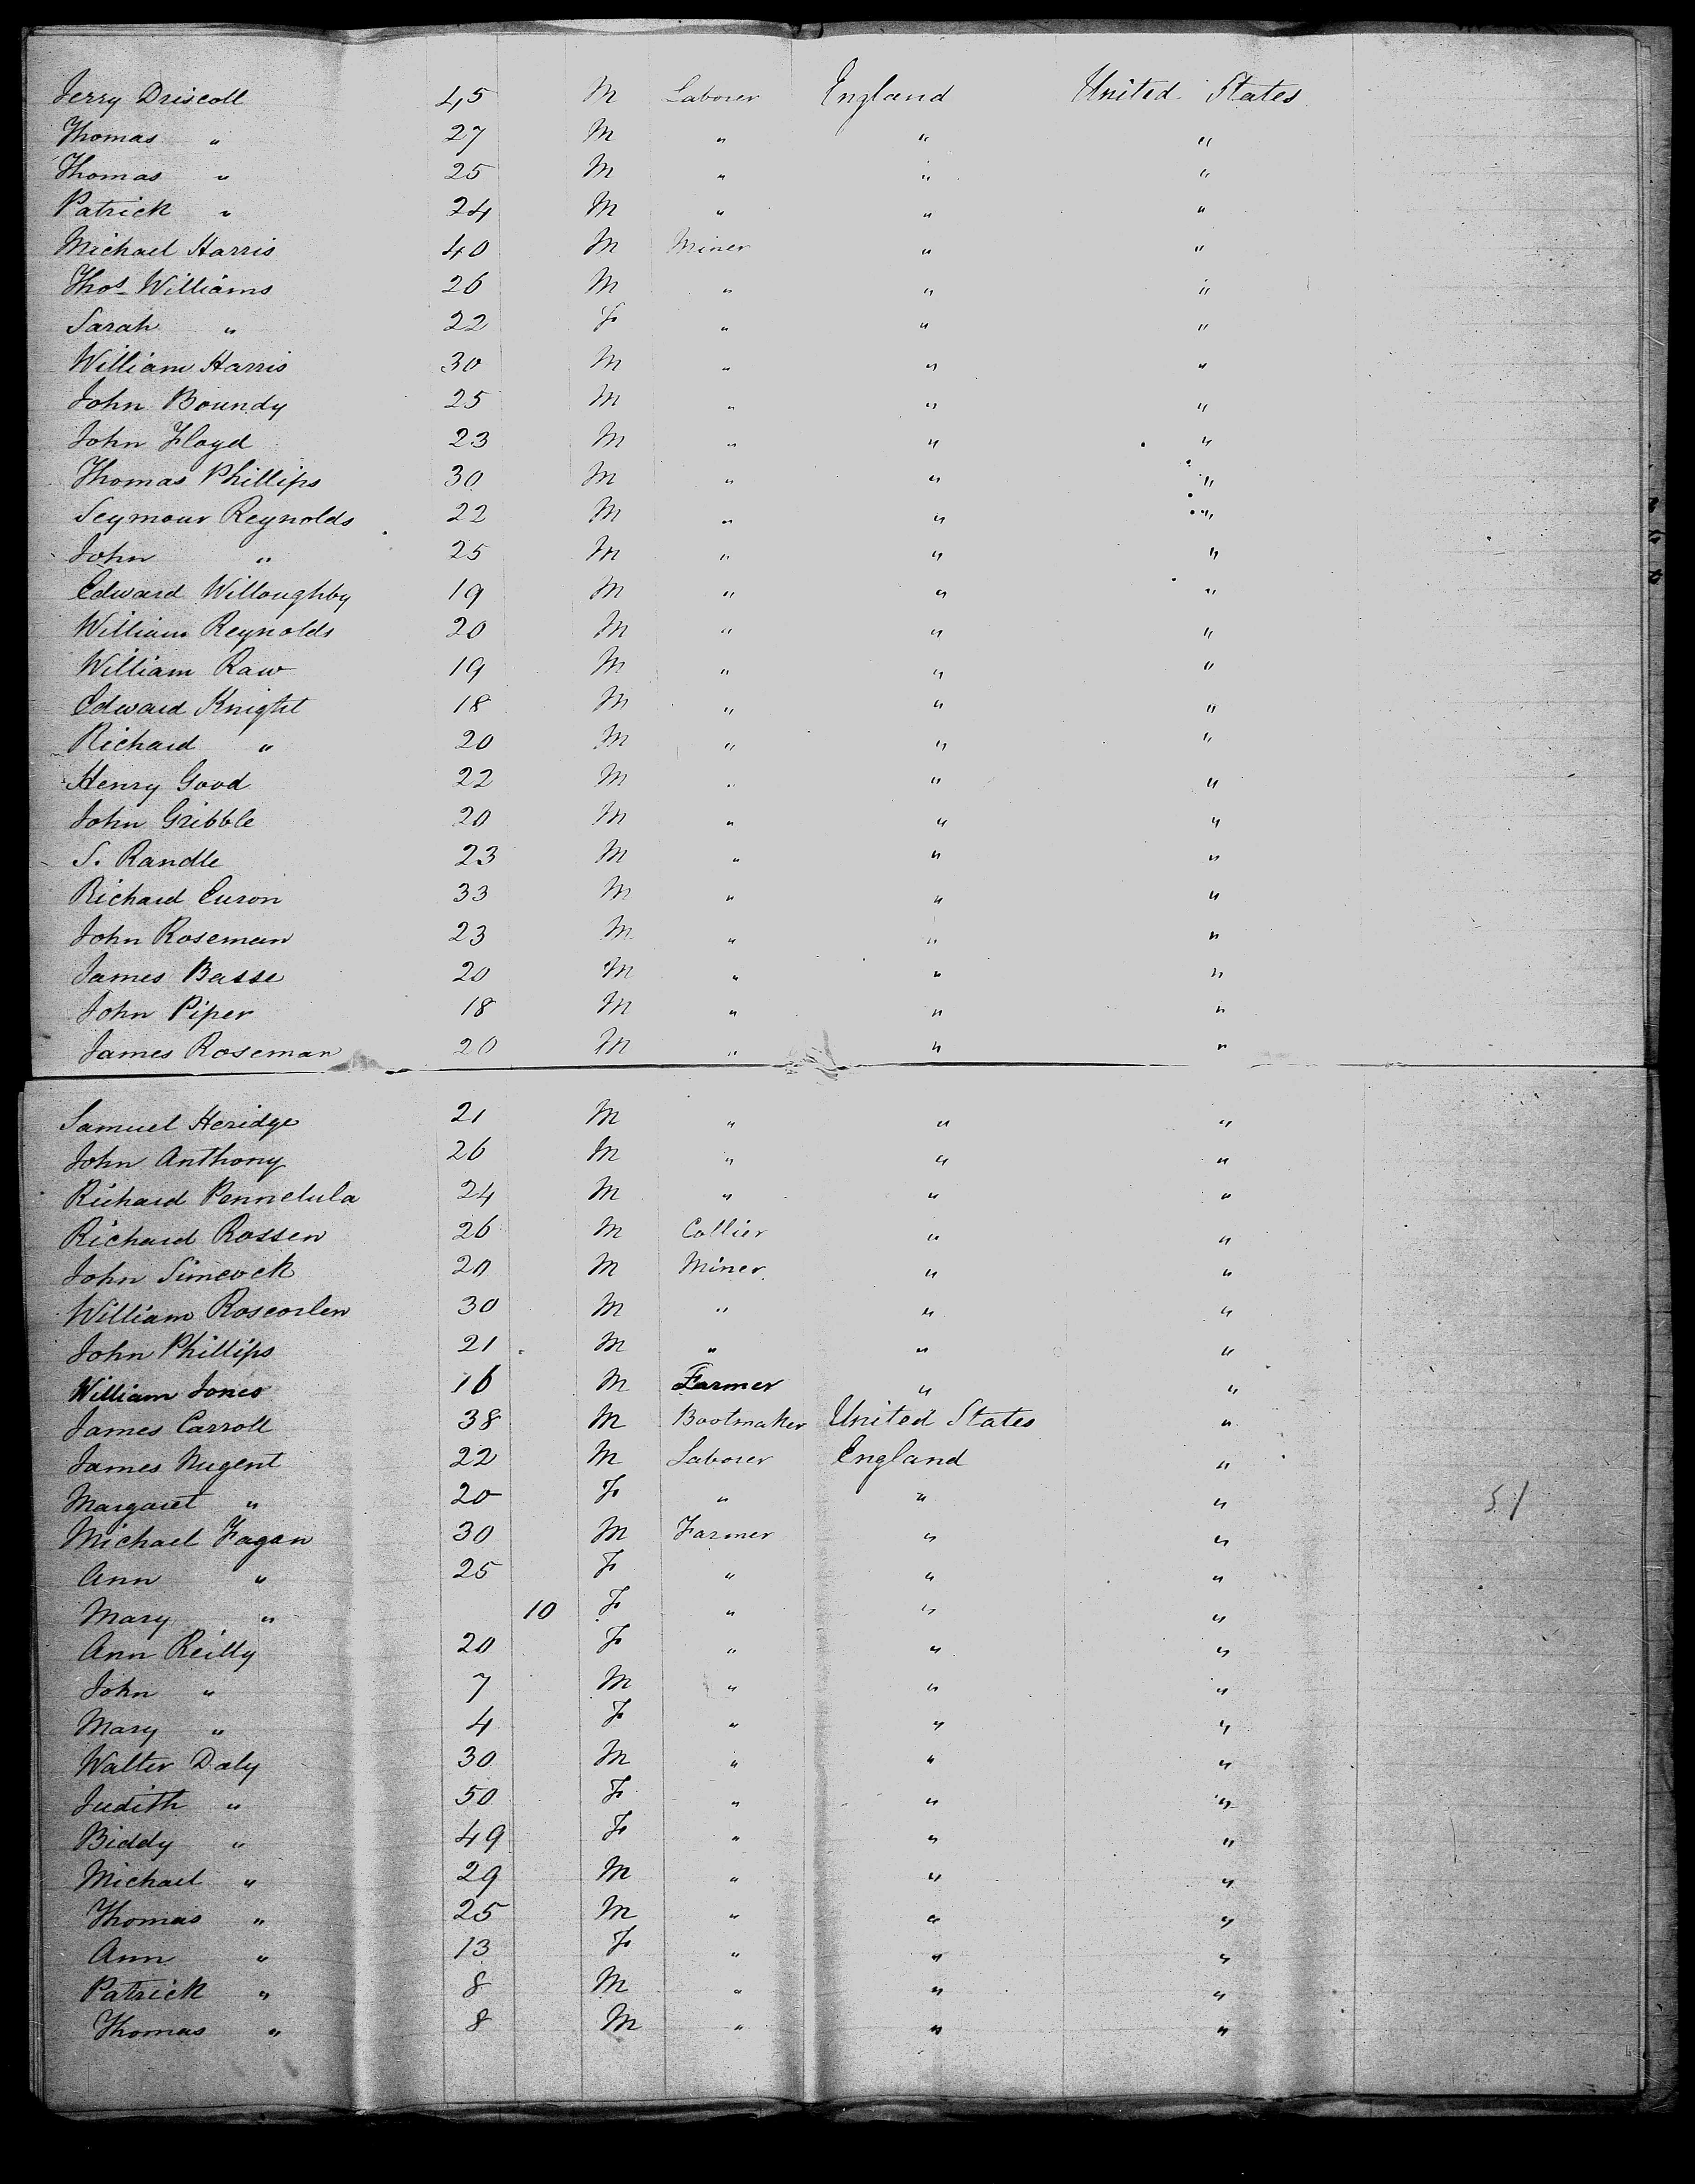 Jerry Driscoll 45 M Laborer England United States
Thomas " 27 M " " "
Thomas " 25 M " " "
Patrick " 24 M " " "
Michael Harris 40 M Miner " "
Thos Williams 26 M " " "
Sarah " 22 F " " "
William Harris 30 M " " "
John Boundy 25 M " " "
John Floyd 23 M " " "
Thomas Phillips 30 M " " "
Seymour Reynolds 22 M " " "
John " 25 M " " "
Edward Willoughby 19 M " " "
William Reynolds 20 M " " "
William Raw 19 M " " "
Edward Knight 18 M " " "
Richard " 20 M " " "
Henry Good 22 M " " "
John Gribble 20 M " " "
S. Randle 23 M " " "
Richard Curon 33 M " " "
John Roseman 23 M " " "
James Basse 20 M " " "
John Piper 18 M " " "
James Roseman 20 M " " "
Samuel Heridge 21 M " " "
John Anthony 26 M " " "
Richard Pennelula 24 M " " "
Richard Rossen 26 M Collier " "
John Simcock 20 M Miner " "
William Roscorlen 30 M " " "
John Phillips 21 M " " "
William Jones 16 M Farmer " "
James Carroll 38 M Bootmaker United States "
James Nugent 22 M Laborer England "
Margaret " 20 F " " " 51
Michael Fagan 30 M Farmer " "
Ann " 25 F " " "
Mary " 10 F " " "
Ann Reilly 20 F " " "
John " 7 M " " "
Mary " 4 F " " "
Walter Daly 30 M " " "
Judith " 50 F " " "
Biddy " 49 F " " "
Michael " 29 M " " "
Thomas " 25 M " " "
Ann " 13 F " " "
Patrick " 8 M " " "
Thomas " 8 M " " "